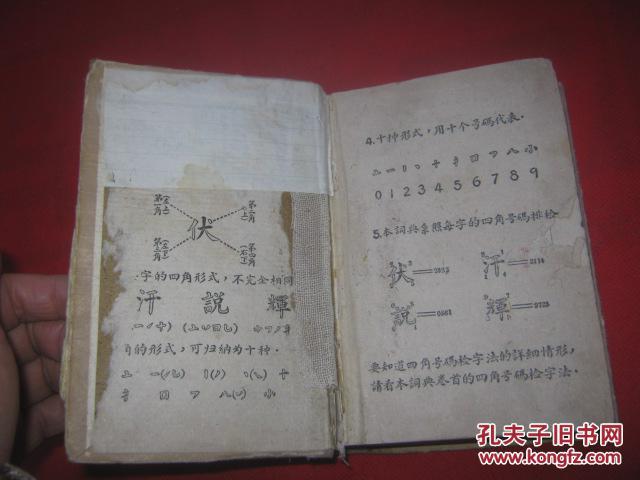 第一角
第二角
伏
第三角
第四角
字的四角形式，不完全相同
汗 說 輝
的形式，可归纳为十种．
4．十种形式，用十个号碼代表．
0 1 2 3 4 5 6 7 8 9
5．本詞典象照每字的四角号碼排检
伏
汗
說
輝
要知道四角号碼检字法的詳細情形，
請看本詞典卷首的四角号碼检字法．
孔夫子旧书网
www.kongfz.com